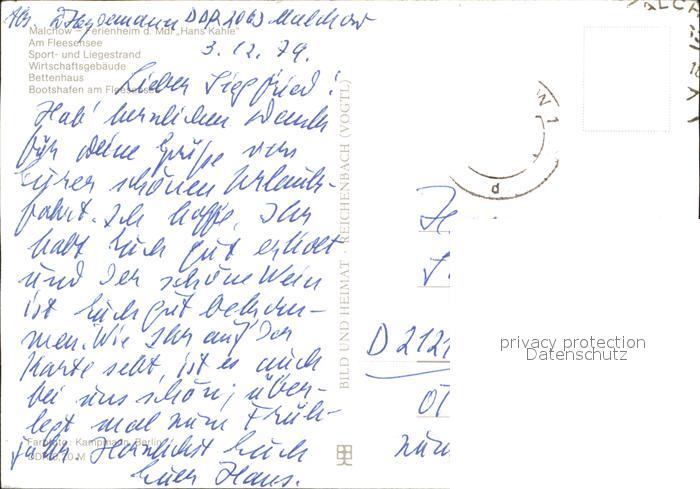 Abs. Heydemann DDR 2063 Malchow
Malchow – Ferienheim d. MdI „Hans Kahle"
Am Fleesensee
Sport- und Liegestrand
Wirtschaftsgebäude
Bettenhaus
Bootshafen am Fleesensee
3.12.79.
Lieber Siegfried!
Hab' herzlichen Dank
für Deine Grüße von
Eurer schönen Urlaubs-
fahrt. Ich hoffe, Ihr
habt Euch gut erholt
und der schöne Wein
ist Euch gut bekom-
men. Wie Ihr auf der
Karte seht, ist es auch
bei uns schön; über-
legt mal zum Früh-
jahr. Herzlichst Euch
Euer Hans.
Farbfoto: Kampmann, Berlin
BILD UND HEIMAT · REICHENBACH (VOGTL)
D 2121
privacy protection
Datenschutz